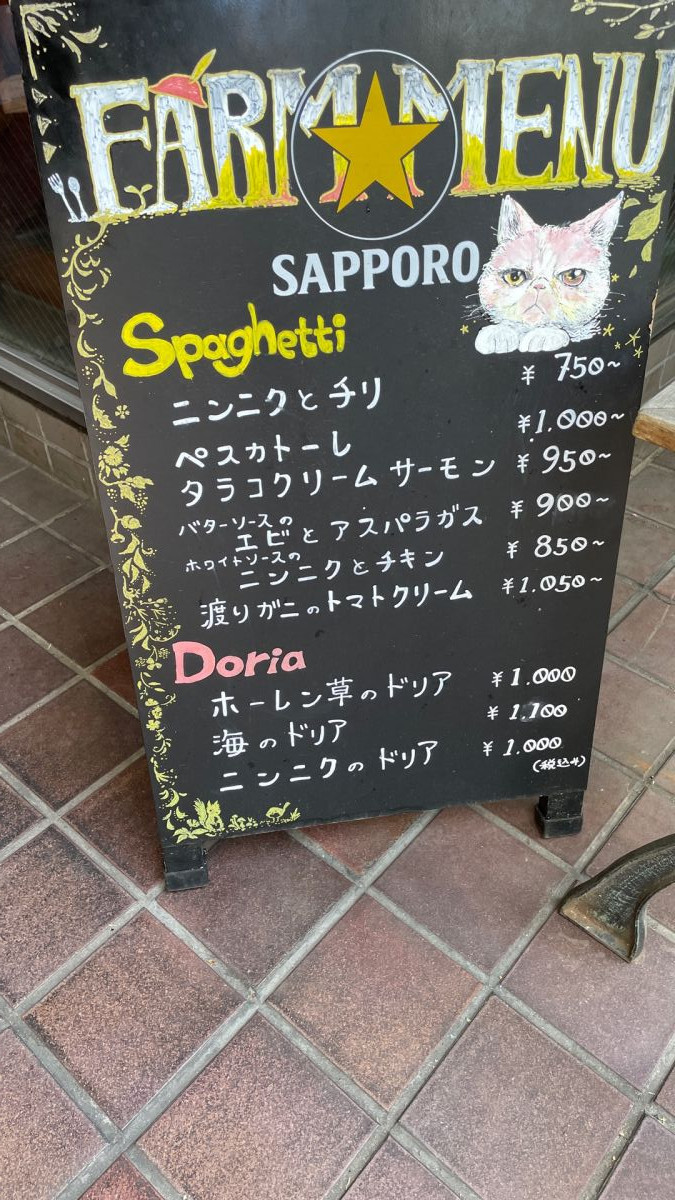 FARM MENU
SAPPORO
Spaghetti
ニンニクとチリ ¥750~
ペスカトーレ ¥1.000~
タラコクリームサーモン ¥950~
バターソースの
エビとアスパラガス ¥900~
ホワイトソースの
ニンニクとチキン ¥850~
渡りガニのトマトクリーム ¥1.050~
Doria
ホーレン草のドリア ¥1.000
海のドリア ¥1.100
ニンニクのドリア ¥1.000
(税込み)